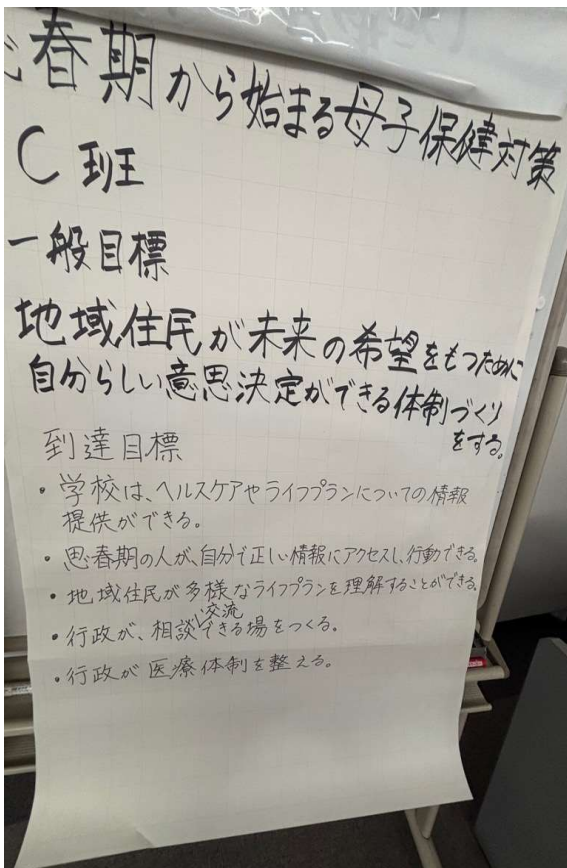 春期から始まる母子保健対策
C 班
一般目標
地域住民が未来の希望をもつために
自分らしい意思決定ができる体制づくり
をする。
到達目標
・学校は、ヘルスケアやライフプランについての情報
提供ができる。
・思春期の人が、自分で正しい情報にアクセスし、行動できる。
・地域住民が多様なライフプランを理解することができる。
交流
・行政が、相談できる場をつくる。
・行政が医療体制を整える。